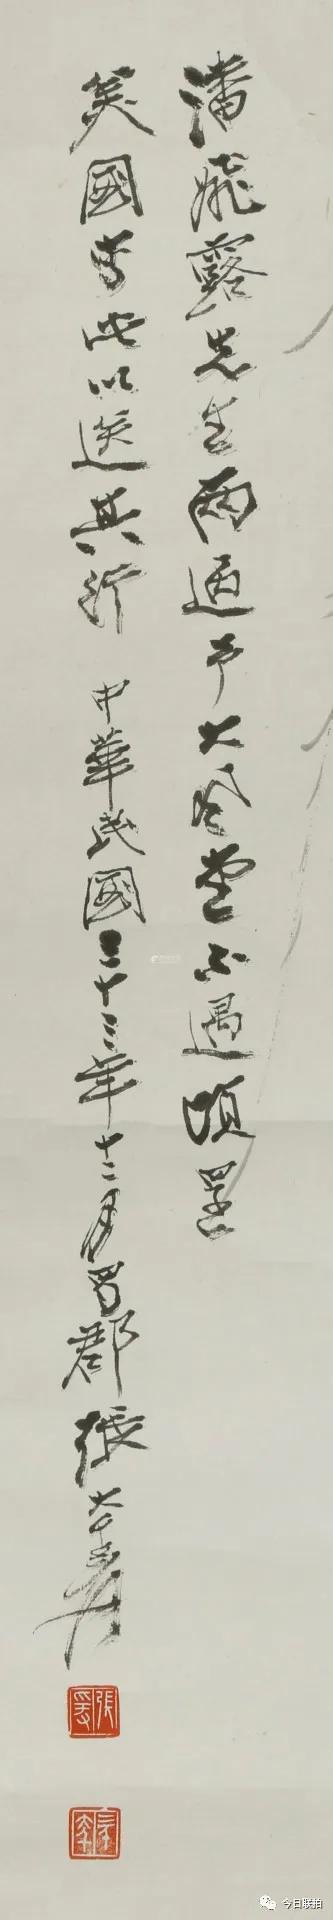 潘露先生兩過予大風堂不遇頃還
英國書此以送其行 中華民國三十三年十二月蜀郡張大千爰
張爰
今日联拍